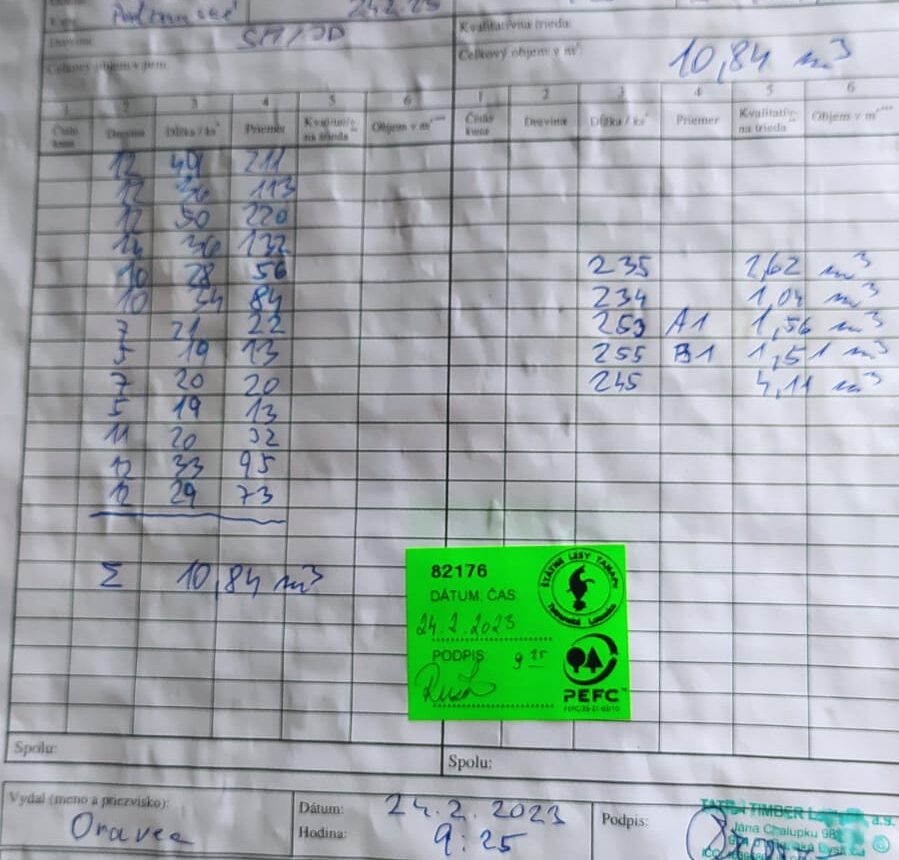 24.2.23
SM/JD
Kvalitatívna trieda:
Drevina
Celkový objem v m³:
10,84 m³
Celkový objem v prm:
1 2 3 4 5 6 1 2 3 4 5 6
Číslo kusu Drevina Dĺžka / ks Priemer Kvalitatív- na trieda Objem v m³ Číslo kusu Drevina Dĺžka / ks Priemer Kvalitatív- na trieda Objem v m³
12 49 211
12 36 113
12 50 220
36 132
10 28 56 235 2,62 m³
10 34 84 234 1,04 m³
7 21 22 253 A1 1,56 m³
5 19 13 255 B1 1,51 m³
7 20 20 245 4,11 m³
5 19 13
11 20 32
12 33 95
12 29 73
Σ 10,84 m³
82176
ŠTÁTNE LESY TANAPu
Tatranská Lomnica
DÁTUM, ČAS
24.2.2023
PODPIS
9 25
PEFC™
Spolu:
Spolu:
Vydal (meno a priezvisko):
Oravec
Dátum: 24.2.2023
Hodina: 9:25
Podpis:
TATRA TIMBER a.s.
Jána Chalupku